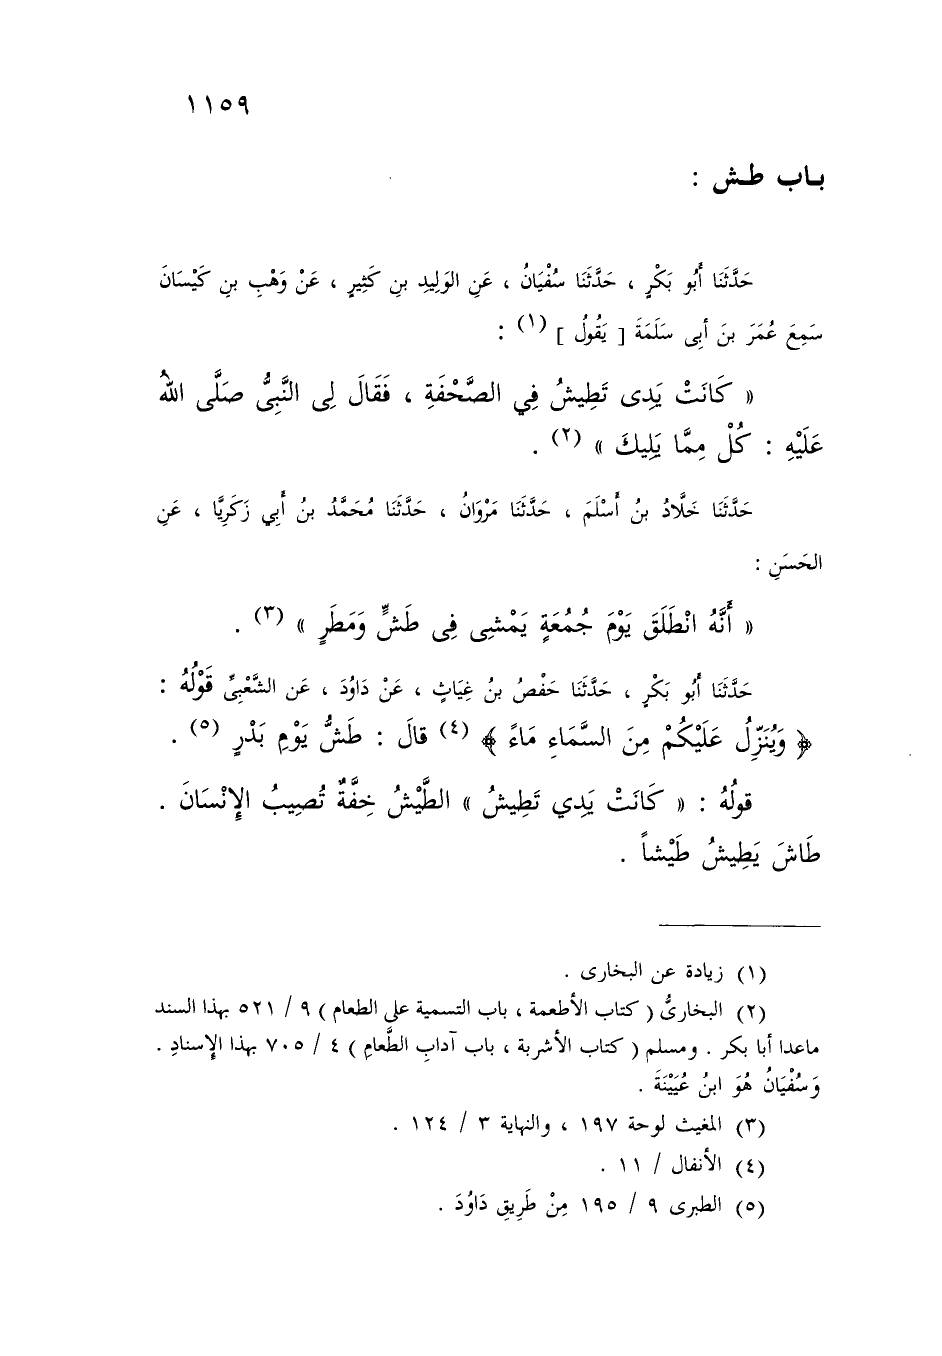 ١١٥٩
بـاب طـش :
حَدَّثَنَا أَبُو بَكْرٍ ، حَدَّثَنَا سُفْيَانُ ، عَنِ الوَلِيدِ بنِ كَثِيرٍ ، عَنْ وَهْبِ بنِ كَيْسَانَ
سَمِعَ عُمَرَ بنَ أَبِى سَلَمَةَ [ يَقُولُ ] (١) :
« كَانَتْ يَدِى تَطِيشُ فِي الصَّحْفَةِ ، فَقَالَ لِى النَّبِىُّ صَلَّى اللهُ
عَلَيْهِ : كُلْ مِمَّا يَلِيكَ » (٢) .
حَدَّثَنَا خَلَّادُ بنُ أَسْلَمَ ، حَدَّثَنَا مَرْوَانُ ، حَدَّثَنَا مُحَمَّدُ بنُ أَبِي زَكَرِيَّا ، عَنِ
الحَسَنِ :
« أَنَّهُ انْطَلَقَ يَوْمَ جُمُعَةٍ يَمْشِى فِى طَشٍّ وَمَطَرٍ » (٣) .
حَدَّثَنَا أَبُو بَكْرٍ ، حَدَّثَنَا حَفْصُ بنُ غِيَاثٍ ، عَنْ دَاوُدَ ، عَن الشَّعْبِىِّ قَوْلُهُ :
﴿ وَيُنَزِّلُ عَلَيْكُمْ مِنَ السَّمَاءِ مَاءً ﴾ (٤) قالَ : طَشُّ يَوْمِ بَدْرٍ (٥) .
قولُهُ : « كَانَتْ يَدِي تَطِيشُ » الطَّيْشُ خِفَّةٌ تُصِيبُ الإِنْسَانَ .
طَاشَ يَطِيشُ طَيْشاً .
(١) زيادة عن البخارى .
(٢) البخارىُّ ( كتاب الأطعمة ، باب التسمية على الطعام ) ٩ / ٥٢١ بهذا السند
ماعدا أبا بكر . ومسلم ( كتاب الأشربة ، باب آدابِ الطَّعامِ ) ٤ / ٧٠٥ بهذا الإِسنادِ .
وَسُفْيَانُ هُوَ ابنُ عُيَيْنَةَ .
(٣) المغيث لوحة ١٩٧ ، والنهاية ٣ / ١٢٤ .
(٤) الأنفال / ١١ .
(٥) الطبرى ٩ / ١٩٥ مِنْ طَرِيقِ دَاوُدَ .